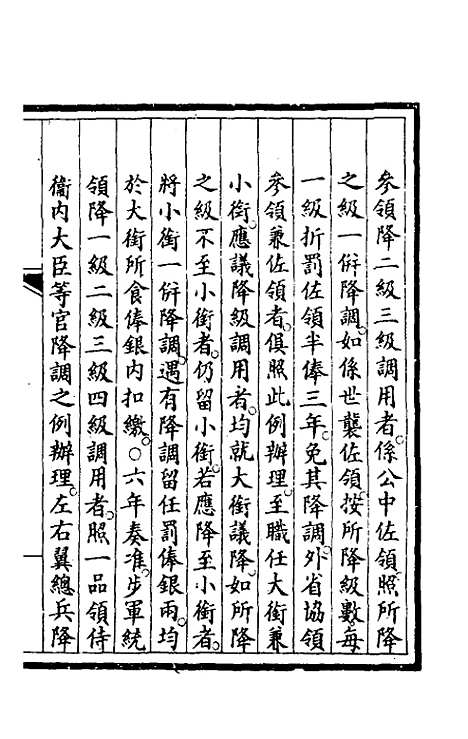 參領降二級三級調用者。係公中佐領。照所降
之級一併降調。如係世襲佐領。按所降級數。每
一級折罰佐領半俸三年。免其降調。外省協領
參領兼佐領者。俱照此例辦理。至職任大銜兼
小銜。應議降級調用者。均就大銜議降。如所降
之級不至小銜者。仍留小銜。若應降至小銜者。
將小銜一併降調。遇有降調留任罰俸銀兩。均
於大銜所食俸銀內扣繳。○六年奏准。步軍統
領降一級二級三級四級調用者。照一品領侍
衞內大臣等官降調之例辦理。左右翼總兵降